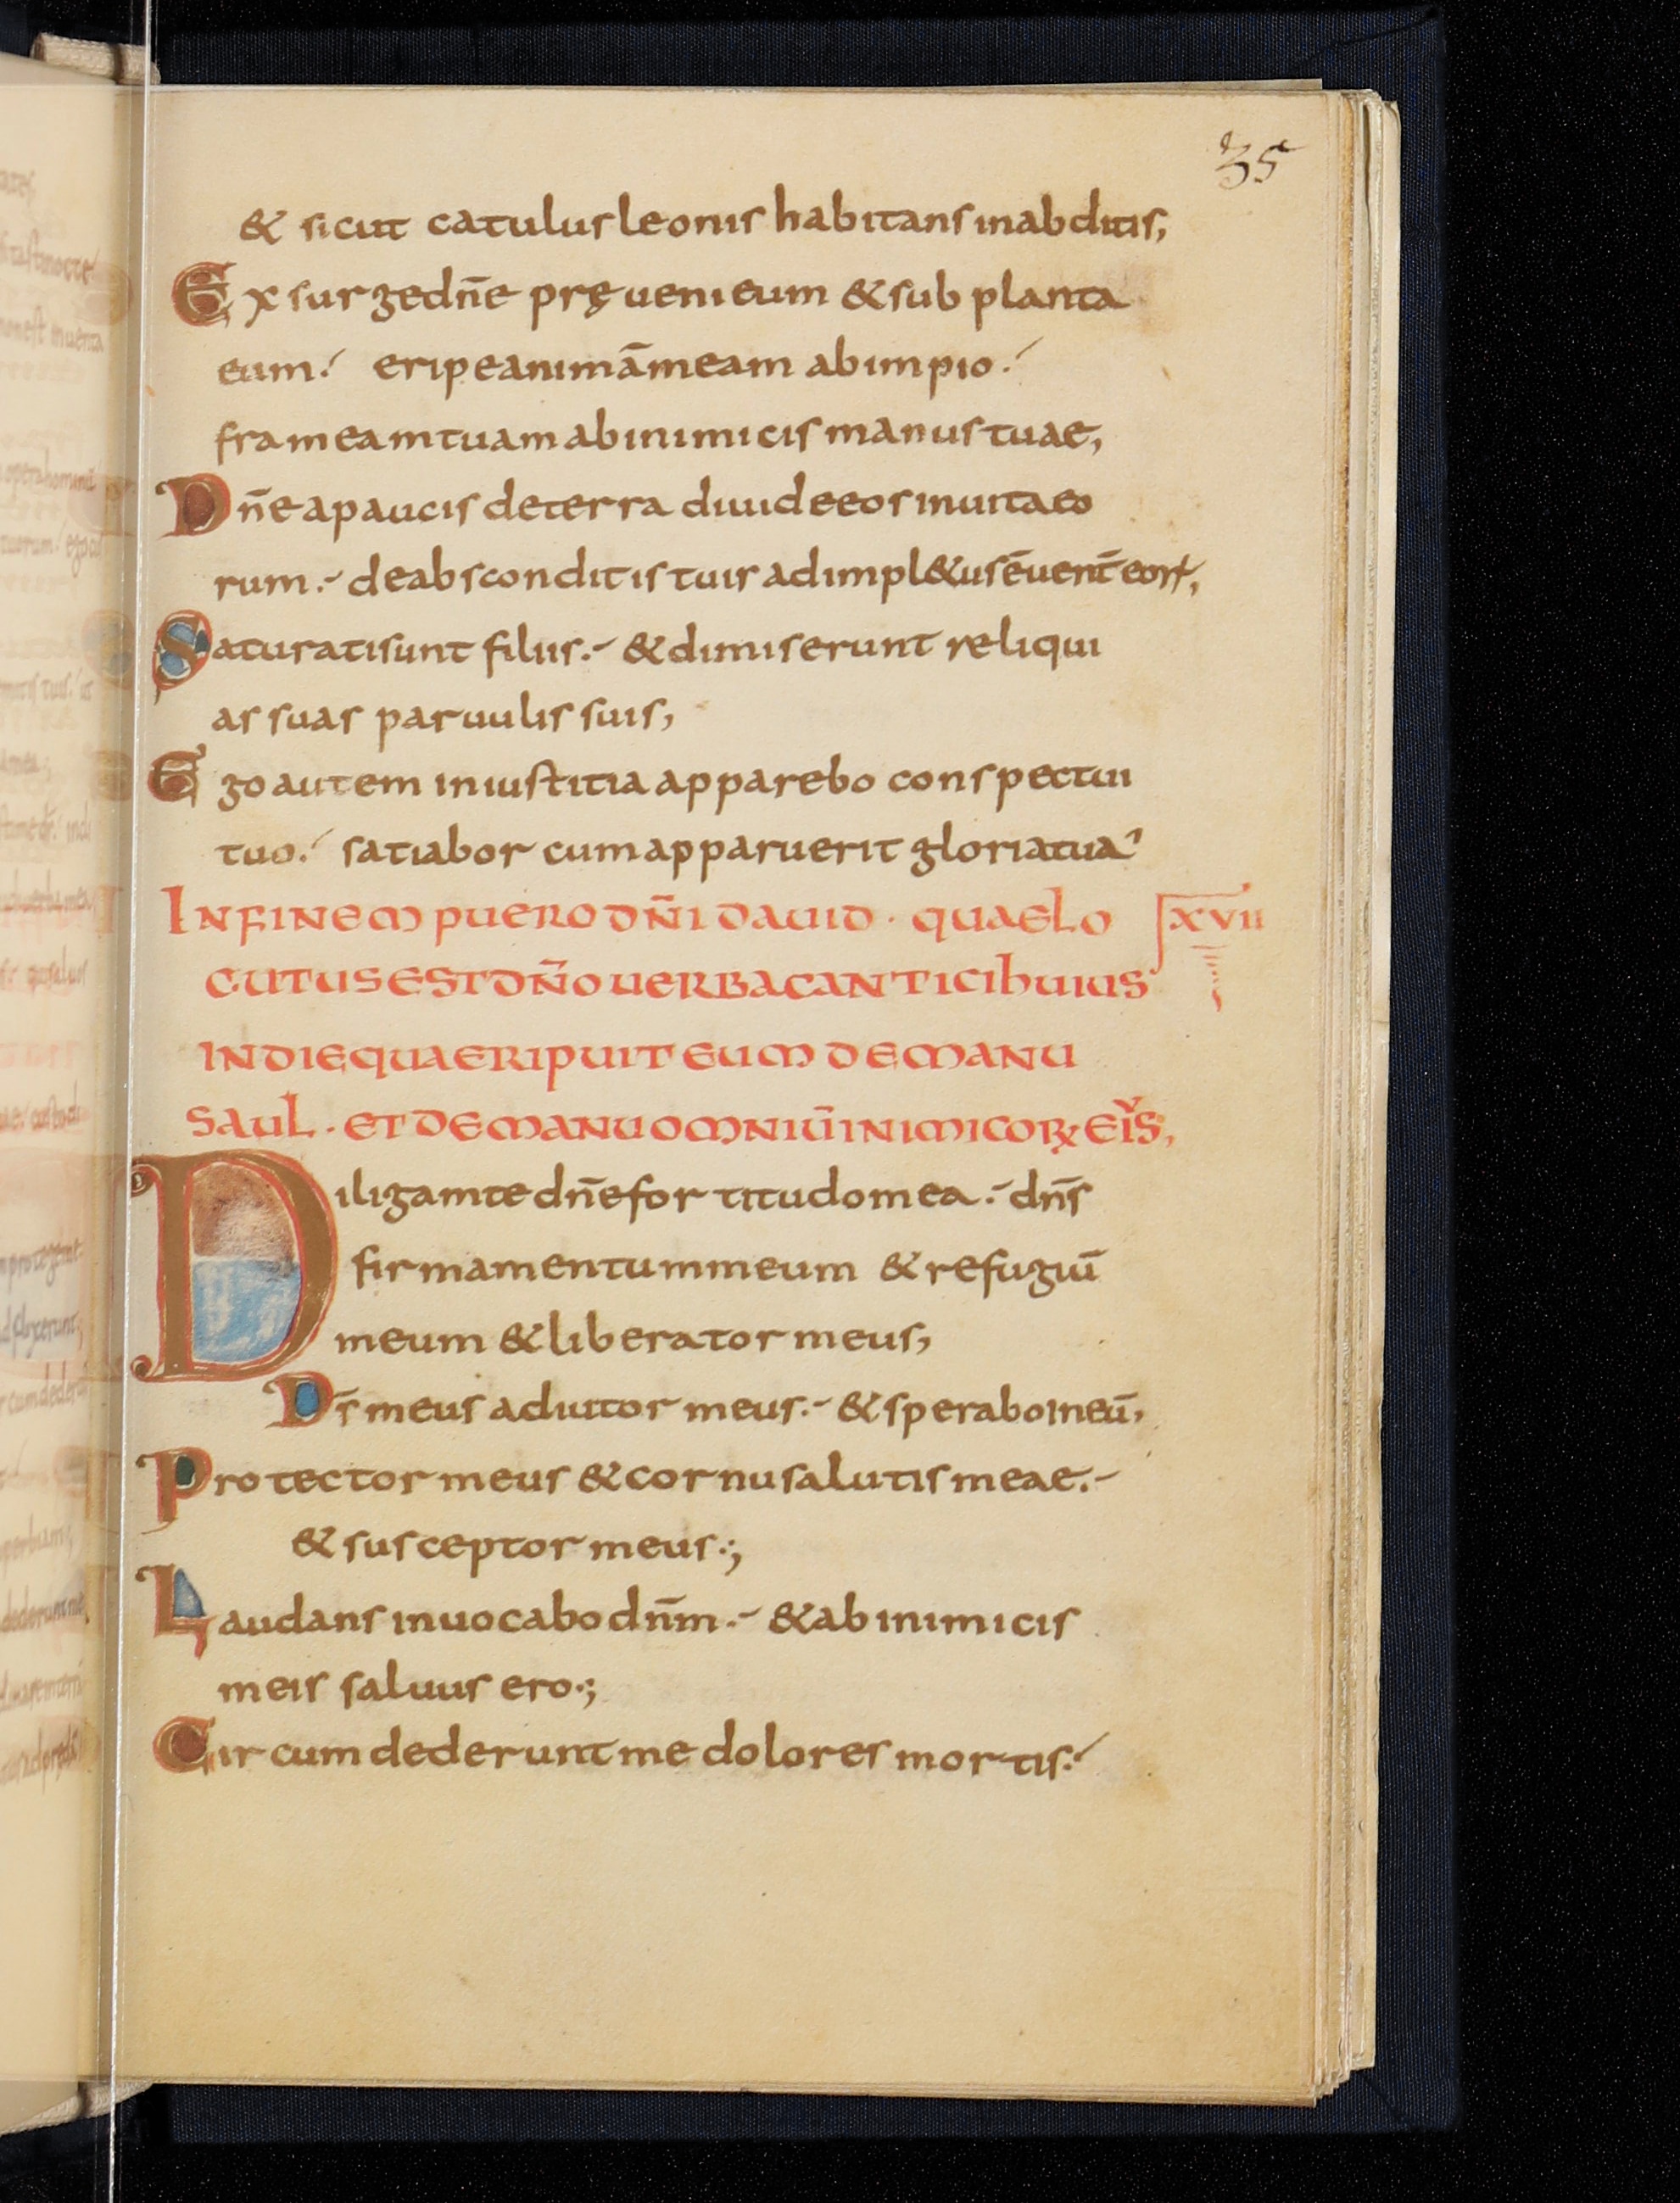 35
& sicut catulus leonis habitans inabditis,
Exsurge dn̄e pręueni eum & subplanta
eum: eripe animā meam ab impio:
frameam tuam ab inimicis manus tuae,
Dn̄e a paucis de terra diuide eos in uita eo
rum: de absconditis tuis adimpl&us ē uent̄ eorꝝ,
Saturati sunt filiis: & dimiserunt reliqui
as suas paruulis suis,
Ego autem in iustitia apparebo conspectui
tuo: satiabor cum apparuerit gloria tua
IN FINEM PUERO DN̄I DAUID · QUAE LO XVII
CUTUS EST DN̄O UERBA CANTICI HUIUS
IN DIE QUA ERIPUIT EUM DE MANU
SAUL · ET DE MANU OMNIŪ INIMICORꝜ EIVS,
Diligam te dn̄e fortitudo mea: dn̄s
firmamentum meum & refugiū
meum & liberator meus,
Ds̄ meus adiutor meus: & sperabo in eū,
Protector meus & cornu salutis meae:
& susceptor meus;
Laudans inuocabo dn̄m: & ab inimicis
meis saluus ero;
Circumdederunt me dolores mortis: